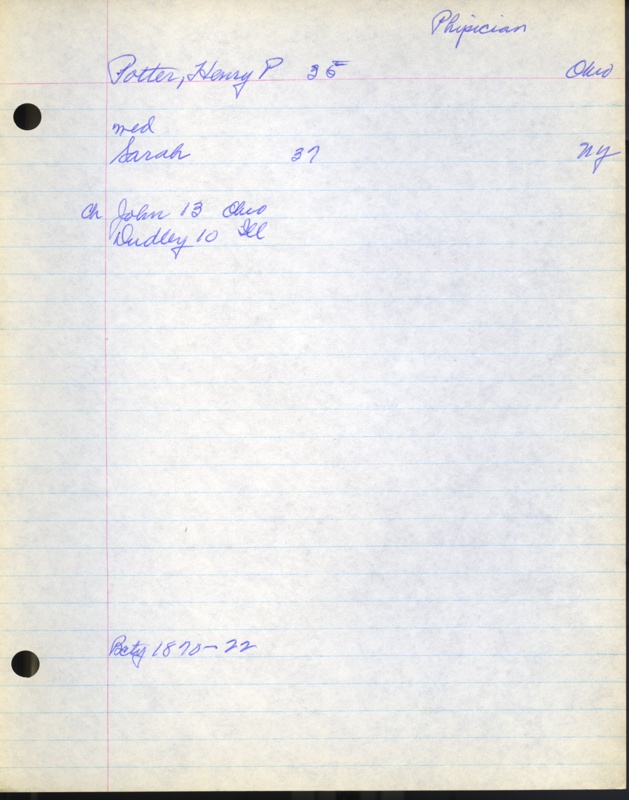 Phipician
Potter, Henry P 35 Ohio
med
Sarah 37 NY
ch John 13 Ohio
Dudley 10 Ill
Baty 1870-22